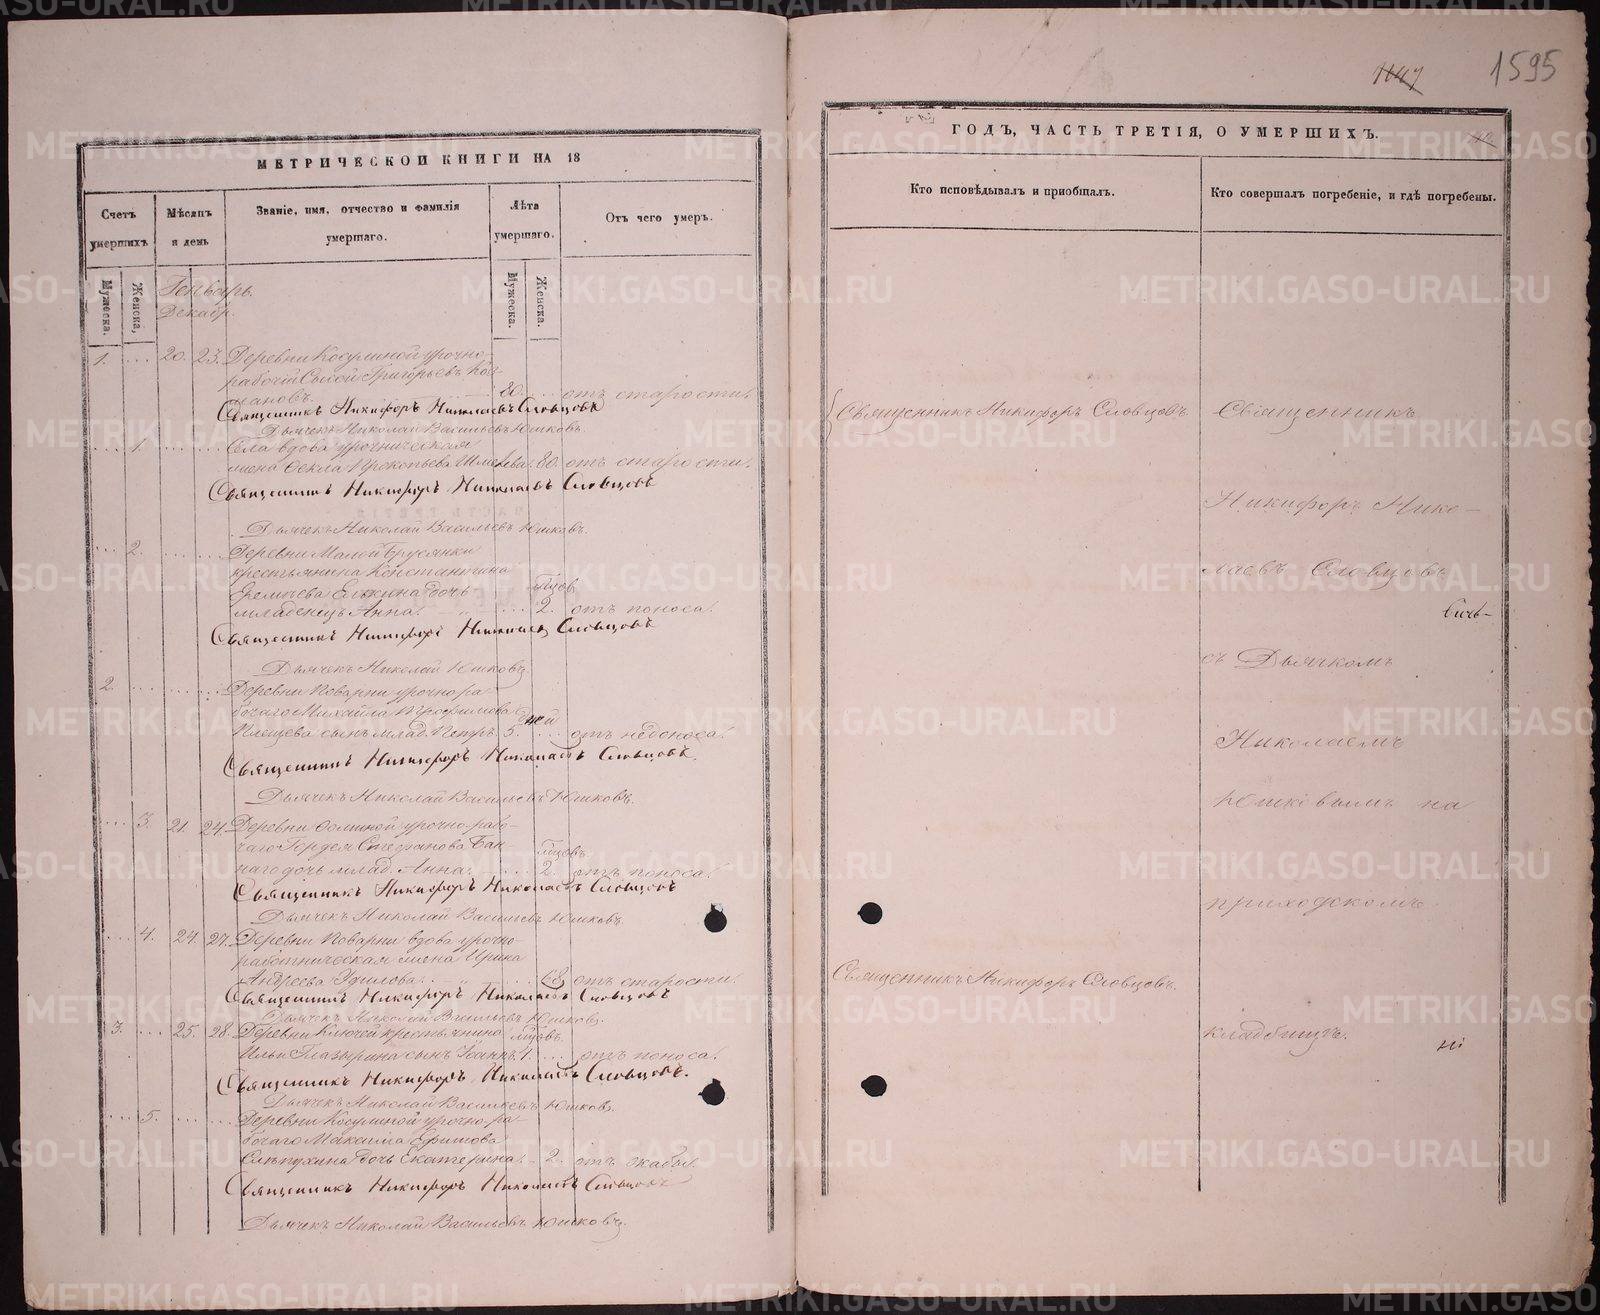 1595
МЕТРИЧЕСКОЙ КНИГИ НА 18
Счетъ умершихъ
Мѣсяцъ и день
Званіе, имя, отчество и фамилія умершаго.
Лѣта умершаго.
Отъ чего умеръ.
Мужеска.
Женска,
Мужеска.
Женска.
Генварь.
Декабр.
1. 20. 23. Деревни Косулиной урочно-
рабочій Сысой Григорьевъ
80. отъ старости.
Священникъ Никифоръ Николаевъ Словцовъ
Дьячекъ Николай Васильевъ Юшковъ.
1. Села вдова урочническая
жена Фекла Прокопьева 80. отъ старости.
Священникъ Никифоръ Николаевъ Словцовъ
Дьячекъ Николай Васильевъ Юшковъ.
2. Деревни Малой Брусянки
крестьянина Константина
Елькина дочь
младенецъ Анна. 2. отъ поноса.
Священникъ Никифоръ Николаевъ Словцовъ
Дьячекъ Николай Юшковъ
2. Деревни Поварни урочно-ра-
бочаго Михайла Трофимова
Плещева сынъ млад. Петръ. 5. дней отъ недоноса.
Священникъ Никифоръ Николаевъ Словцовъ.
Дьячекъ Николай Васильевъ Юшковъ.
3. 21. 24. Деревни урочно-рабо-
чаго Гордея Стефанова Бан-
наго дочь млад. Анна. 2. отъ поноса.
Священникъ Никифоръ Николаевъ Словцовъ
Дьячекъ Николай Васильевъ Юшковъ.
4. 24. 27. Деревни Поварни вдова урочно-
работническая жена Ирина
Андреева 68. отъ старости.
Священникъ Никифоръ Николаевъ Словцовъ
Дьячекъ Николай Васильевъ Юшковъ.
3. 25. 28. Деревни Ключей крестьянина
Ильи Глазырина сынъ Іоаннъ 1. отъ поноса.
Священникъ Никифоръ Николаевъ Словцовъ.
Дьячекъ Николай Васильевъ Юшковъ.
5. Деревни Косулиной урочно-ра-
бочаго Максима Ефимова
Слѣпухина дочь Екатерина. 2. отъ жабы.
Священникъ Никифоръ Николаевъ Словцовъ
Дьячекъ Николай Васильевъ Юшковъ.
ГОДЪ, ЧАСТЬ ТРЕТІЯ, О УМЕРШИХЪ.
Кто исповѣдывалъ и пріобщалъ.
Кто совершалъ погребеніе, и гдѣ погребены.
Священникъ Никифоръ Словцовъ.
Священникъ Никифоръ Словцовъ.
Священникъ
Никифоръ Нико-
лаевъ Словцовъ
съ Дьячкомъ
Николаемъ
Юшковымъ на
приходскомъ
кладбищѣ.
METRIKI.GASO-URAL.RU